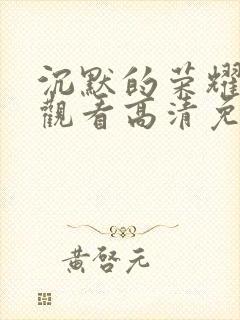 沉默的荣耀
觀看高清免
黃啓元